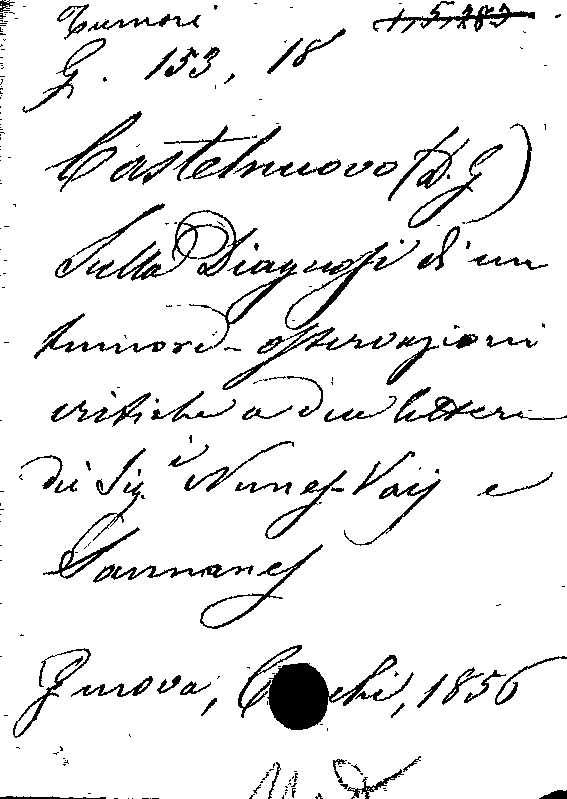 Tumori 1,5,283
G. 153, 18
Castelnuovo (D. G)
Sulla Diagnosi di un
tumore - osservazioni
critiche a due lettere
dei Sig.i Nunes-Vais e
Genova, 1856